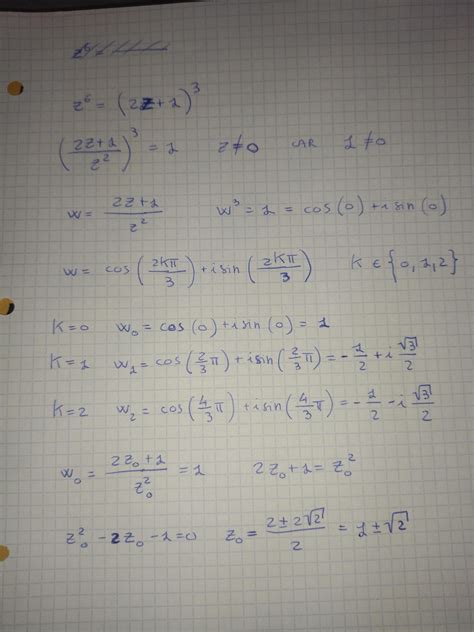 z⁶ = (2z+1)³
((2z+1)/z²)³ = 1 z≠0 CAR 1≠0
w = (2z+1)/z² w³ = 1 = cos(0)+i sin(0)
w = cos(2kπ/3)+i sin(2kπ/3) K ∈ {0,1,2}
K=0 w₀ = cos(0)+i sin(0) = 1
K=1 w₁ = cos(2/3 π)+i sin(2/3 π) = -1/2 + i √3/2
K=2 w₂ = cos(4/3 π)+i sin(4/3 π) = -1/2 - i √3/2
w₀ = (2z₀+1)/z₀² = 1 2z₀+1 = z₀²
z₀² - 2z₀ - 1 = 0 z₀ = (2±2√2)/2 = 1±√2